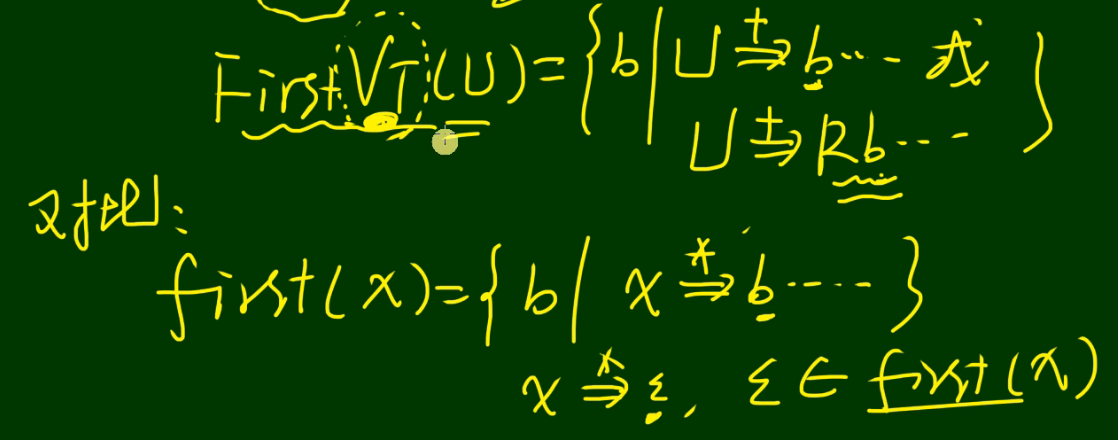 FirstVT(U)={b|U⇒⁺b···或
U⇒⁺Rb···}
对比:
first(x)={b| x⇒*b····}
x⇒*ε, ε∈first(x)